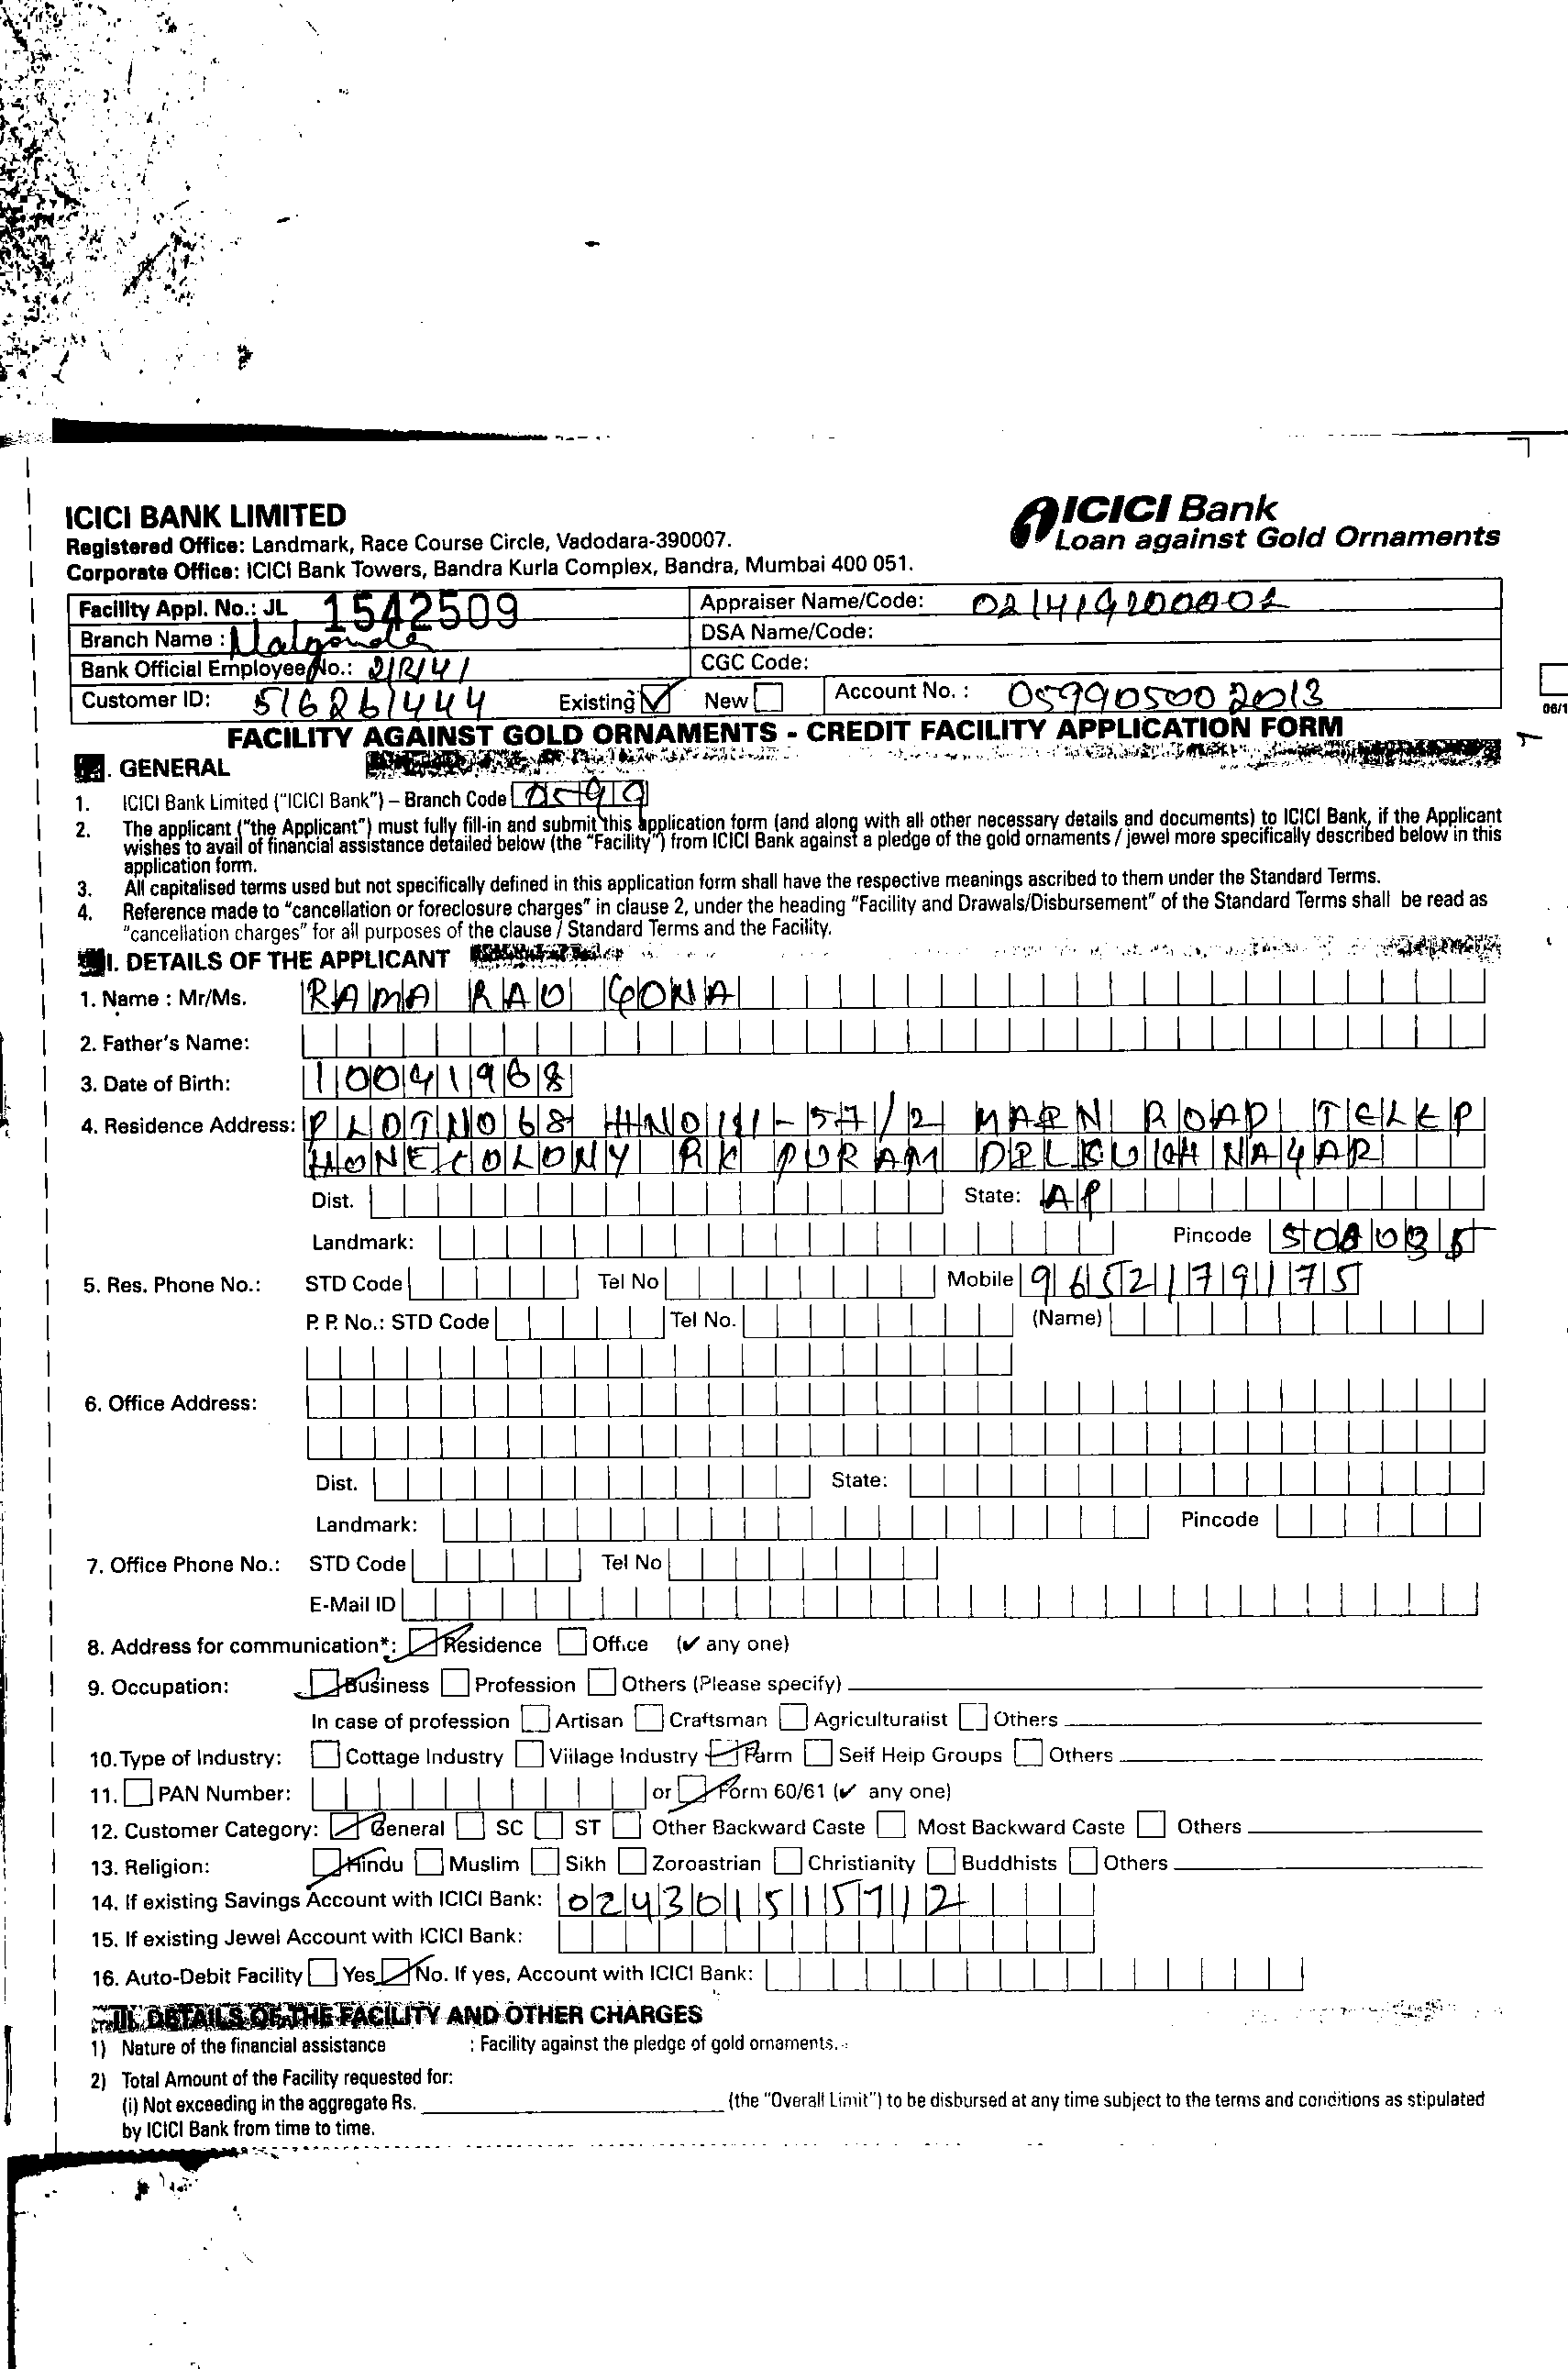 ICICI BANK LIMITED
Registered Office: Landmark, Race Course Circle, Vadodara-390007.
Corporate Office: ICICI Bank Towers, Bandra Kurla Complex, Bandra, Mumbai 400 051.
ICICI Bank
Loan against Gold Ornaments
Facility Appl. No.: JL 1542509
Appraiser Name/Code:
Branch Name : Nalgonda
DSA Name/Code:
Bank Official Employee No.:
CGC Code:
Customer ID: 516261444 Existing ✓ New
Account No. : 059905002013
06/1
FACILITY AGAINST GOLD ORNAMENTS - CREDIT FACILITY APPLICATION FORM
I. GENERAL
1. ICICI Bank Limited ("ICICI Bank") – Branch Code 0599
2. The applicant ("the Applicant") must fully fill-in and submit this application form (and along with all other necessary details and documents) to ICICI Bank, if the Applicant
wishes to avail of financial assistance detailed below (the "Facility") from ICICI Bank against a pledge of the gold ornaments / jewel more specifically described below in this
application form.
3. All capitalised terms used but not specifically defined in this application form shall have the respective meanings ascribed to them under the Standard Terms.
4. Reference made to "cancellation or foreclosure charges" in clause 2, under the heading "Facility and Drawals/Disbursement" of the Standard Terms shall be read as
"cancellation charges" for all purposes of the clause / Standard Terms and the Facility.
II. DETAILS OF THE APPLICANT
1. Name : Mr/Ms. RAMA RAO GONA
2. Father's Name:
3. Date of Birth: 10041968
4. Residence Address: PLOTNO68 HNO MAIN ROAD TELEP
HONECOLONY RK PURAM NAGAR
Dist. State: AP
Landmark: Pincode
5. Res. Phone No.: STD Code Tel No Mobile 9652179175
P. P. No.: STD Code Tel No. (Name)
6. Office Address:
Dist. State:
Landmark: Pincode
7. Office Phone No.: STD Code Tel No
E-Mail ID
8. Address for communication*: Residence Office (✓ any one)
9. Occupation: Business Profession Others (Please specify)
In case of profession Artisan Craftsman Agriculturalist Others
10. Type of Industry: Cottage Industry Village Industry Farm Self Help Groups Others
11. PAN Number: or Form 60/61 (✓ any one)
12. Customer Category: General SC ST Other Backward Caste Most Backward Caste Others
13. Religion: Hindu Muslim Sikh Zoroastrian Christianity Buddhists Others
14. If existing Savings Account with ICICI Bank: 024301515712
15. If existing Jewel Account with ICICI Bank:
16. Auto-Debit Facility Yes No. If yes, Account with ICICI Bank:
III. DETAILS OF THE FACILITY AND OTHER CHARGES
1) Nature of the financial assistance : Facility against the pledge of gold ornaments.
2) Total Amount of the Facility requested for:
(i) Not exceeding in the aggregate Rs. (the "Overall Limit") to be disbursed at any time subject to the terms and conditions as stipulated
by ICICI Bank from time to time.